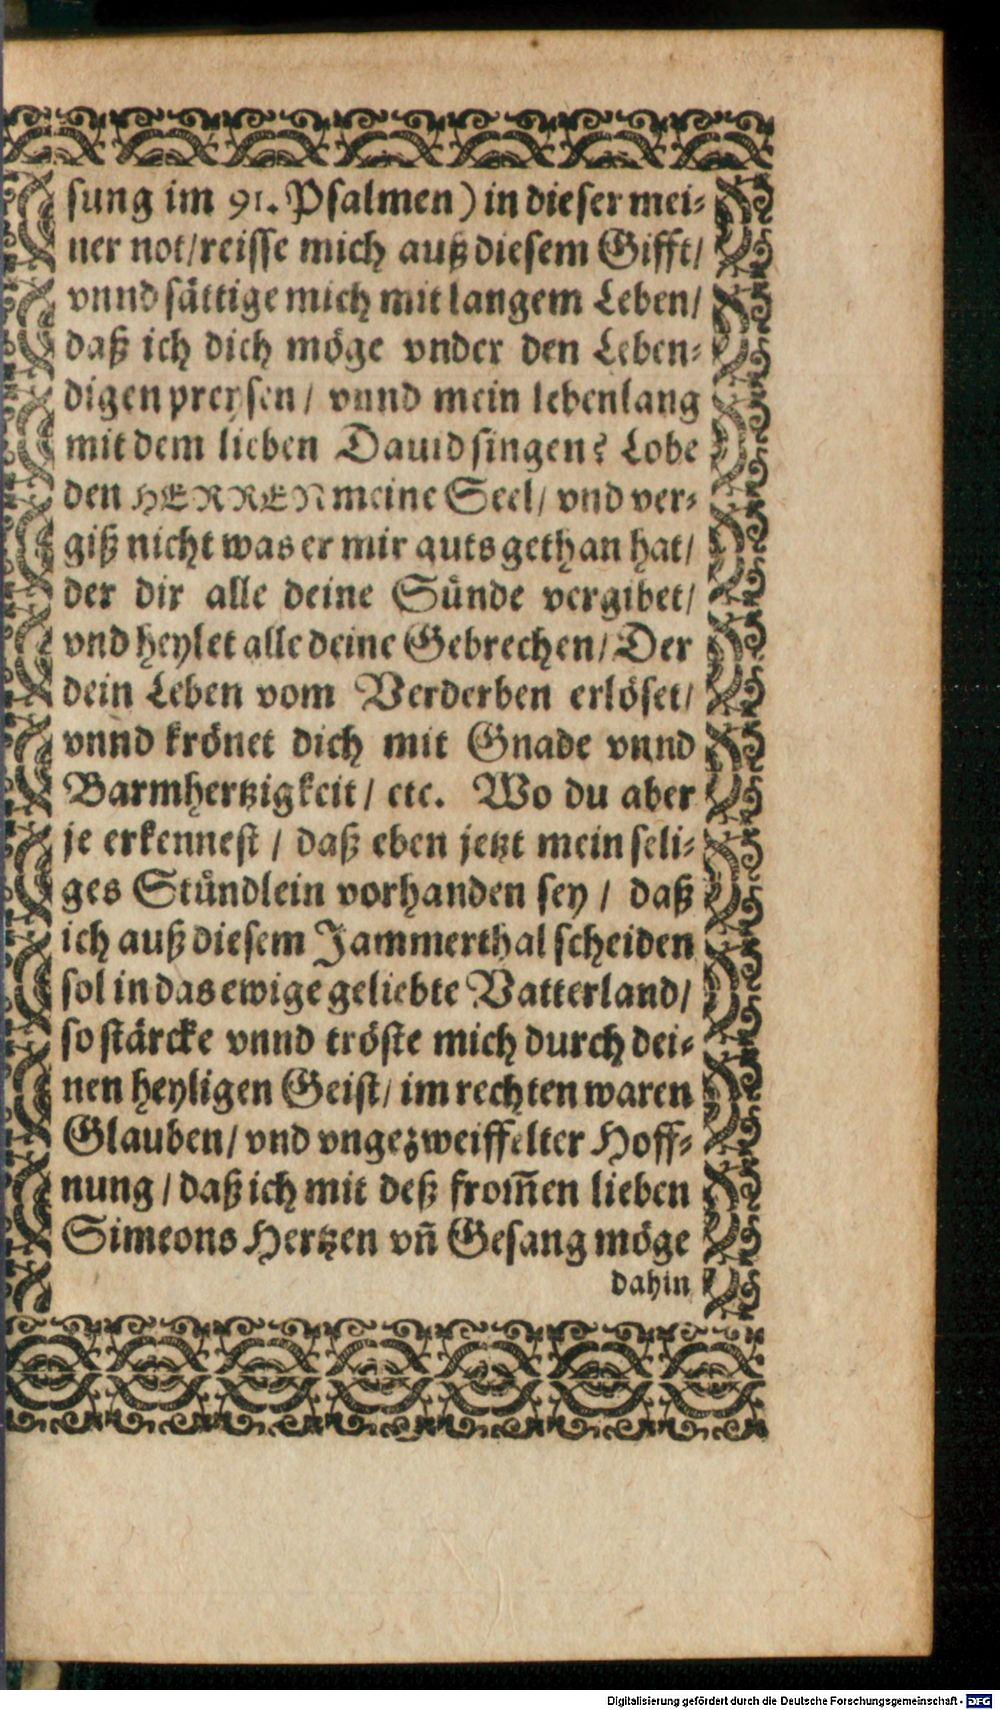 sung im 91. Psalmen) in dieser mei-
ner not/reisse mich auß diesem Gifft/
vnnd sättige mich mit langem Leben/
daß ich dich möge vnder den Leben-
digen preysen/ vnnd mein lebenlang
mit dem lieben Dauid singen? Lobe
den HERREN meine Seel/ vnd ver-
giß nicht was er mir guts gethan hat/
der dir alle deine Sünde vergibet/
vnd heylet alle deine Gebrechen/ Der
dein Leben vom Verderben erlöset/
vnnd krönet dich mit Gnade vnnd
Barmhertzigkeit/ etc. Wo du aber
je erkennest / daß eben jetzt mein seli-
ges Stündlein vorhanden sey / daß
ich auß diesem Jammerthal scheiden
sol in das ewige geliebte Vatterland/
so stärcke vnnd tröste mich durch dei-
nen heyligen Geist/ im rechten waren
Glauben/ vnd vngezweiffelter Hoff-
nung/ daß ich mit deß from̃en lieben
Simeons Hertzen vñ Gesang möge
dahin
Digitalisierung gefördert durch die Deutsche Forschungsgemeinschaft - DFG